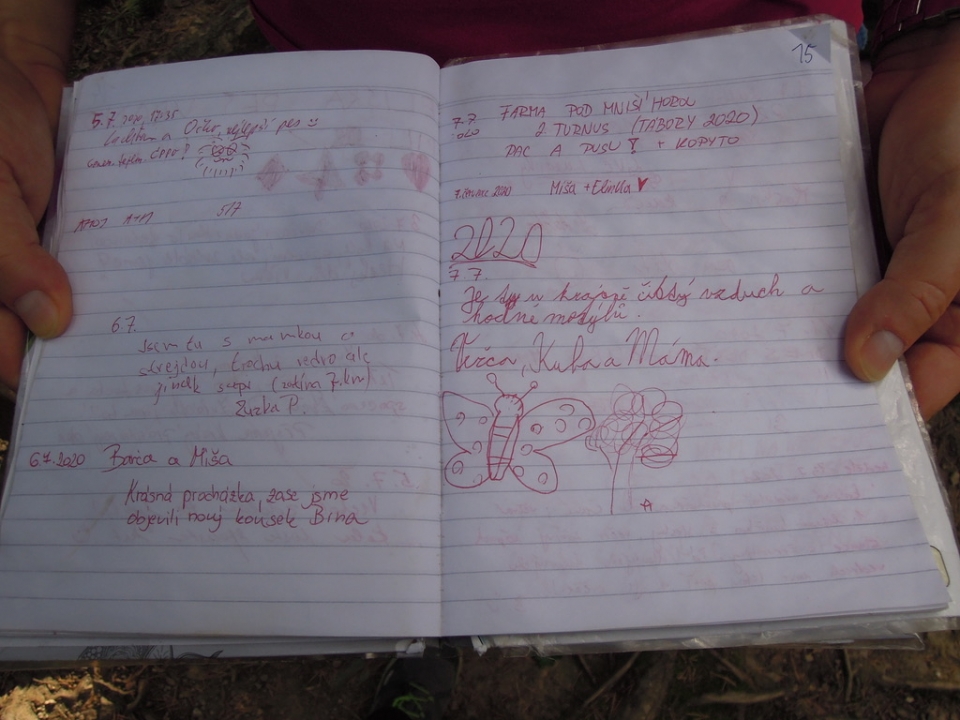 5.7. 2020, 17:35
a Očko, nejlepší pes
5/7
6.7.
Jsem tu s mamkou a
strejdou, trochu vedro ale
jinak supr (zatím 7. km)
Zuzka P.
6.7.2020 Barča a Míša
Krásná procházka, zase jsme
objevili nový kousek Brna
15
7.7. FARMA POD MNIŠÍ HOROU
2020 2 TURNUS (TÁBORY 2020)
PAC A PUSU! + KOPYTO
7. červenec 2020 Míša + Elinka ♥
2020
7.7.
Je tu v krajině čistý vzduch a
hodně motýlů.
Verča, Kuba a Máma.